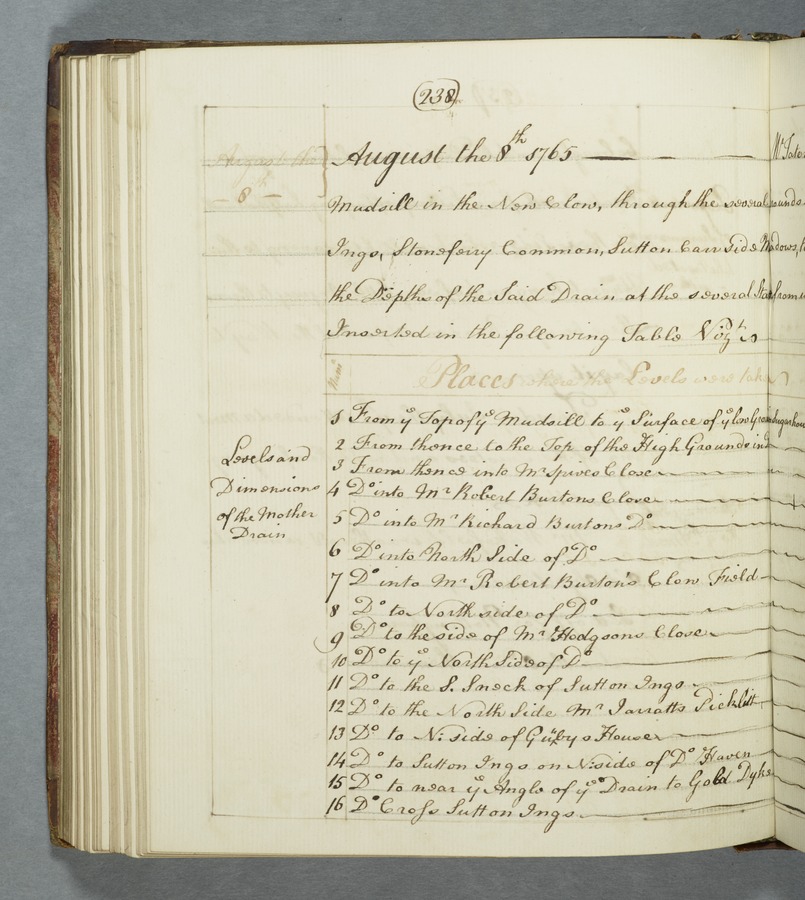 238
August the
8th
August the 8th 1765
Mr
Mudsill in the New Clow, through the several Grounds
Ings, Stoneferry Common, Sutton Carr side Meadows,
the Depths of the Said Drain at the several
from
Inserted in the following Table Vizt
Places where the Levels were taken
Levels and
Dimensions
of the Mother
Drain
1 From ye Top of ye Mudsill to ye Surface of ye low
2 From thence to the Top of the High Grounds in
3 From thence into Mr Spives Close
4 Do into Mr Robert Burtons Close
5 Do into Mr Richard Burtons Do
6 Do into North Side of Do
7 Do into Mr Robert Burton's Clow Field
8 Do to North side of Do
9 Do to the side of Mr Hodgsons Close
10 Do to ye North Side of Do
11 Do to the S. Sneck of Sutton Ings
12 Do to the North Side Mr Jarratts
13 Do to N: side of House
14 Do to Sutton Ings on N: side of Do Haven
15 Do to near ye Angle of ye Drain to Gold Dyke
16 Do Cross Sutton Ings